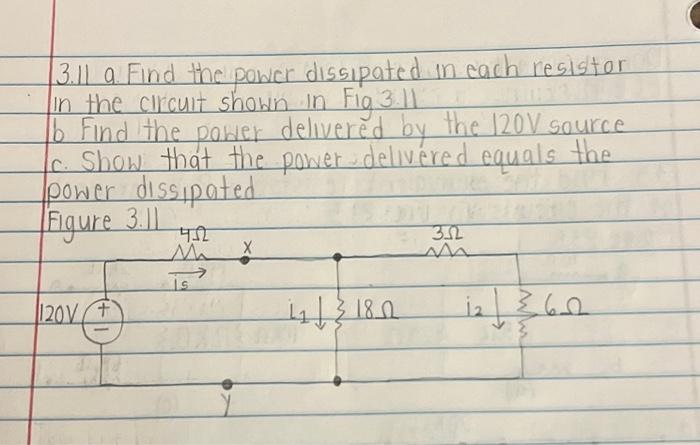 3.11 a. Find the power dissipated in each resistor
in the circuit shown in Fig 3.11
b Find the power delivered by the 120V source
c. Show that the power delivered equals the
power dissipated
Figure 3.11
4Ω
3Ω
X
is
120V
+
−
i1
18Ω
i2
6Ω
Y